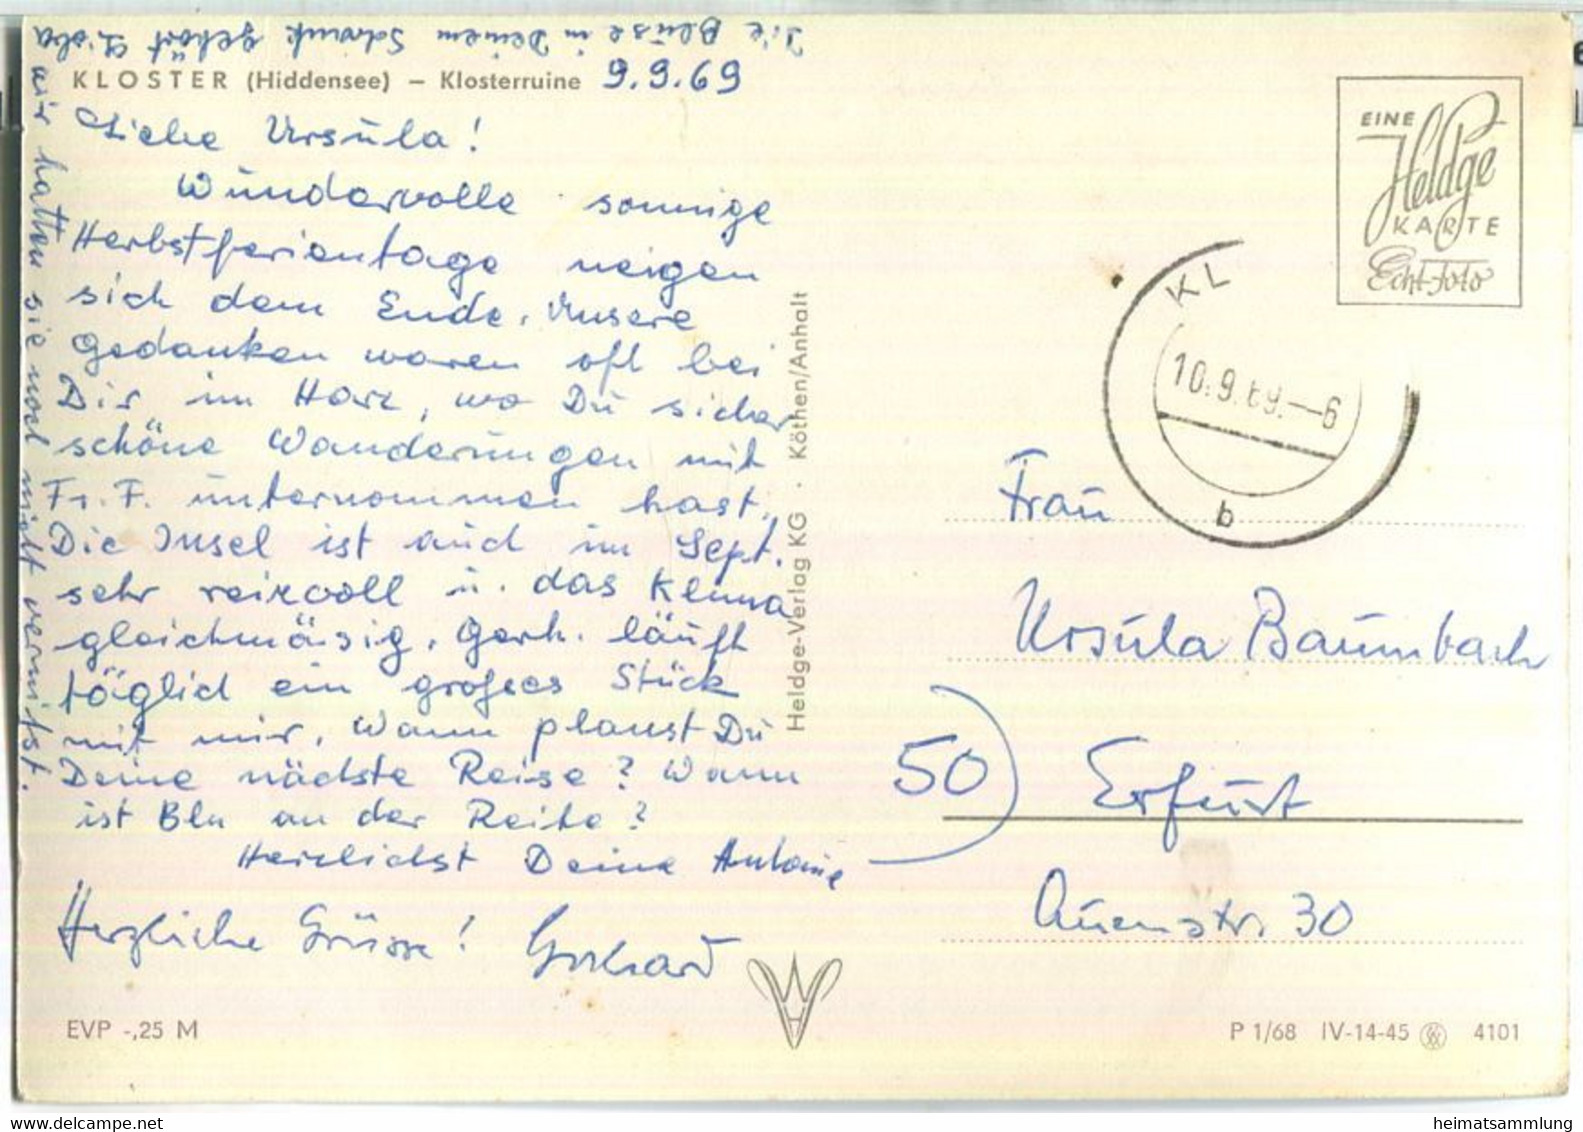 Die Bluse in Deinem Schrank gehört Lioba
wir hatten sie noch nicht vermißt.
KLOSTER (Hiddensee) – Klosterruine 9.9.69
Liebe Ursula!
Wundervolle sonnige
Herbstferientage neigen
sich dem Ende. Unsere
Gedanken waren oft bei
Dir im Harz, wo Du sicher
schöne Wanderungen mit
Fr. F. unternommen hast.
Die Insel ist auch im Sept.
sehr reizvoll u. das Klima
gleichmäsig. Gerh. läuft
täglich ein großes Stück
mit mir. Wann planst Du
Deine nächste Reise? Wann
ist Bln an der Reihe?
Herzlichst Deine Antonie
Herzliche Grüsse! Gerhard
EVP -,25 M
Heldge-Verlag KG · Köthen/Anhalt
EINE
Heldge
KARTE
Echt-Foto
KL
10.9.69.–6
b
Frau
Ursula Baumbach
50 Erfurt
Auenstr. 30
P 1/68 IV-14-45 4101
heimatsammlung
www.delcampe.net